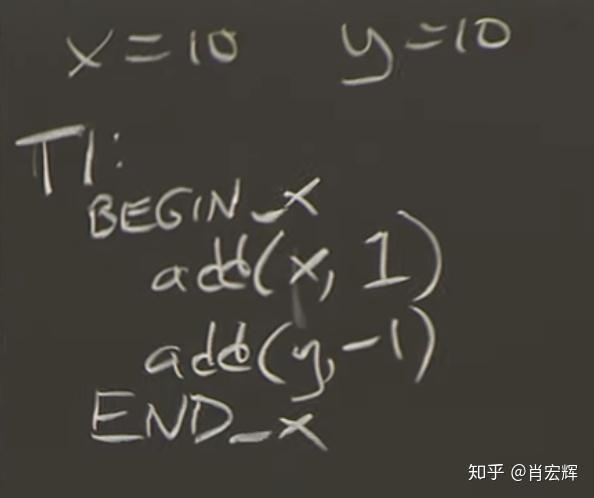 x=10 y=10
T1:
BEGIN_X
add(x, 1)
add(y,-1)
END_X
知乎 @肖宏辉